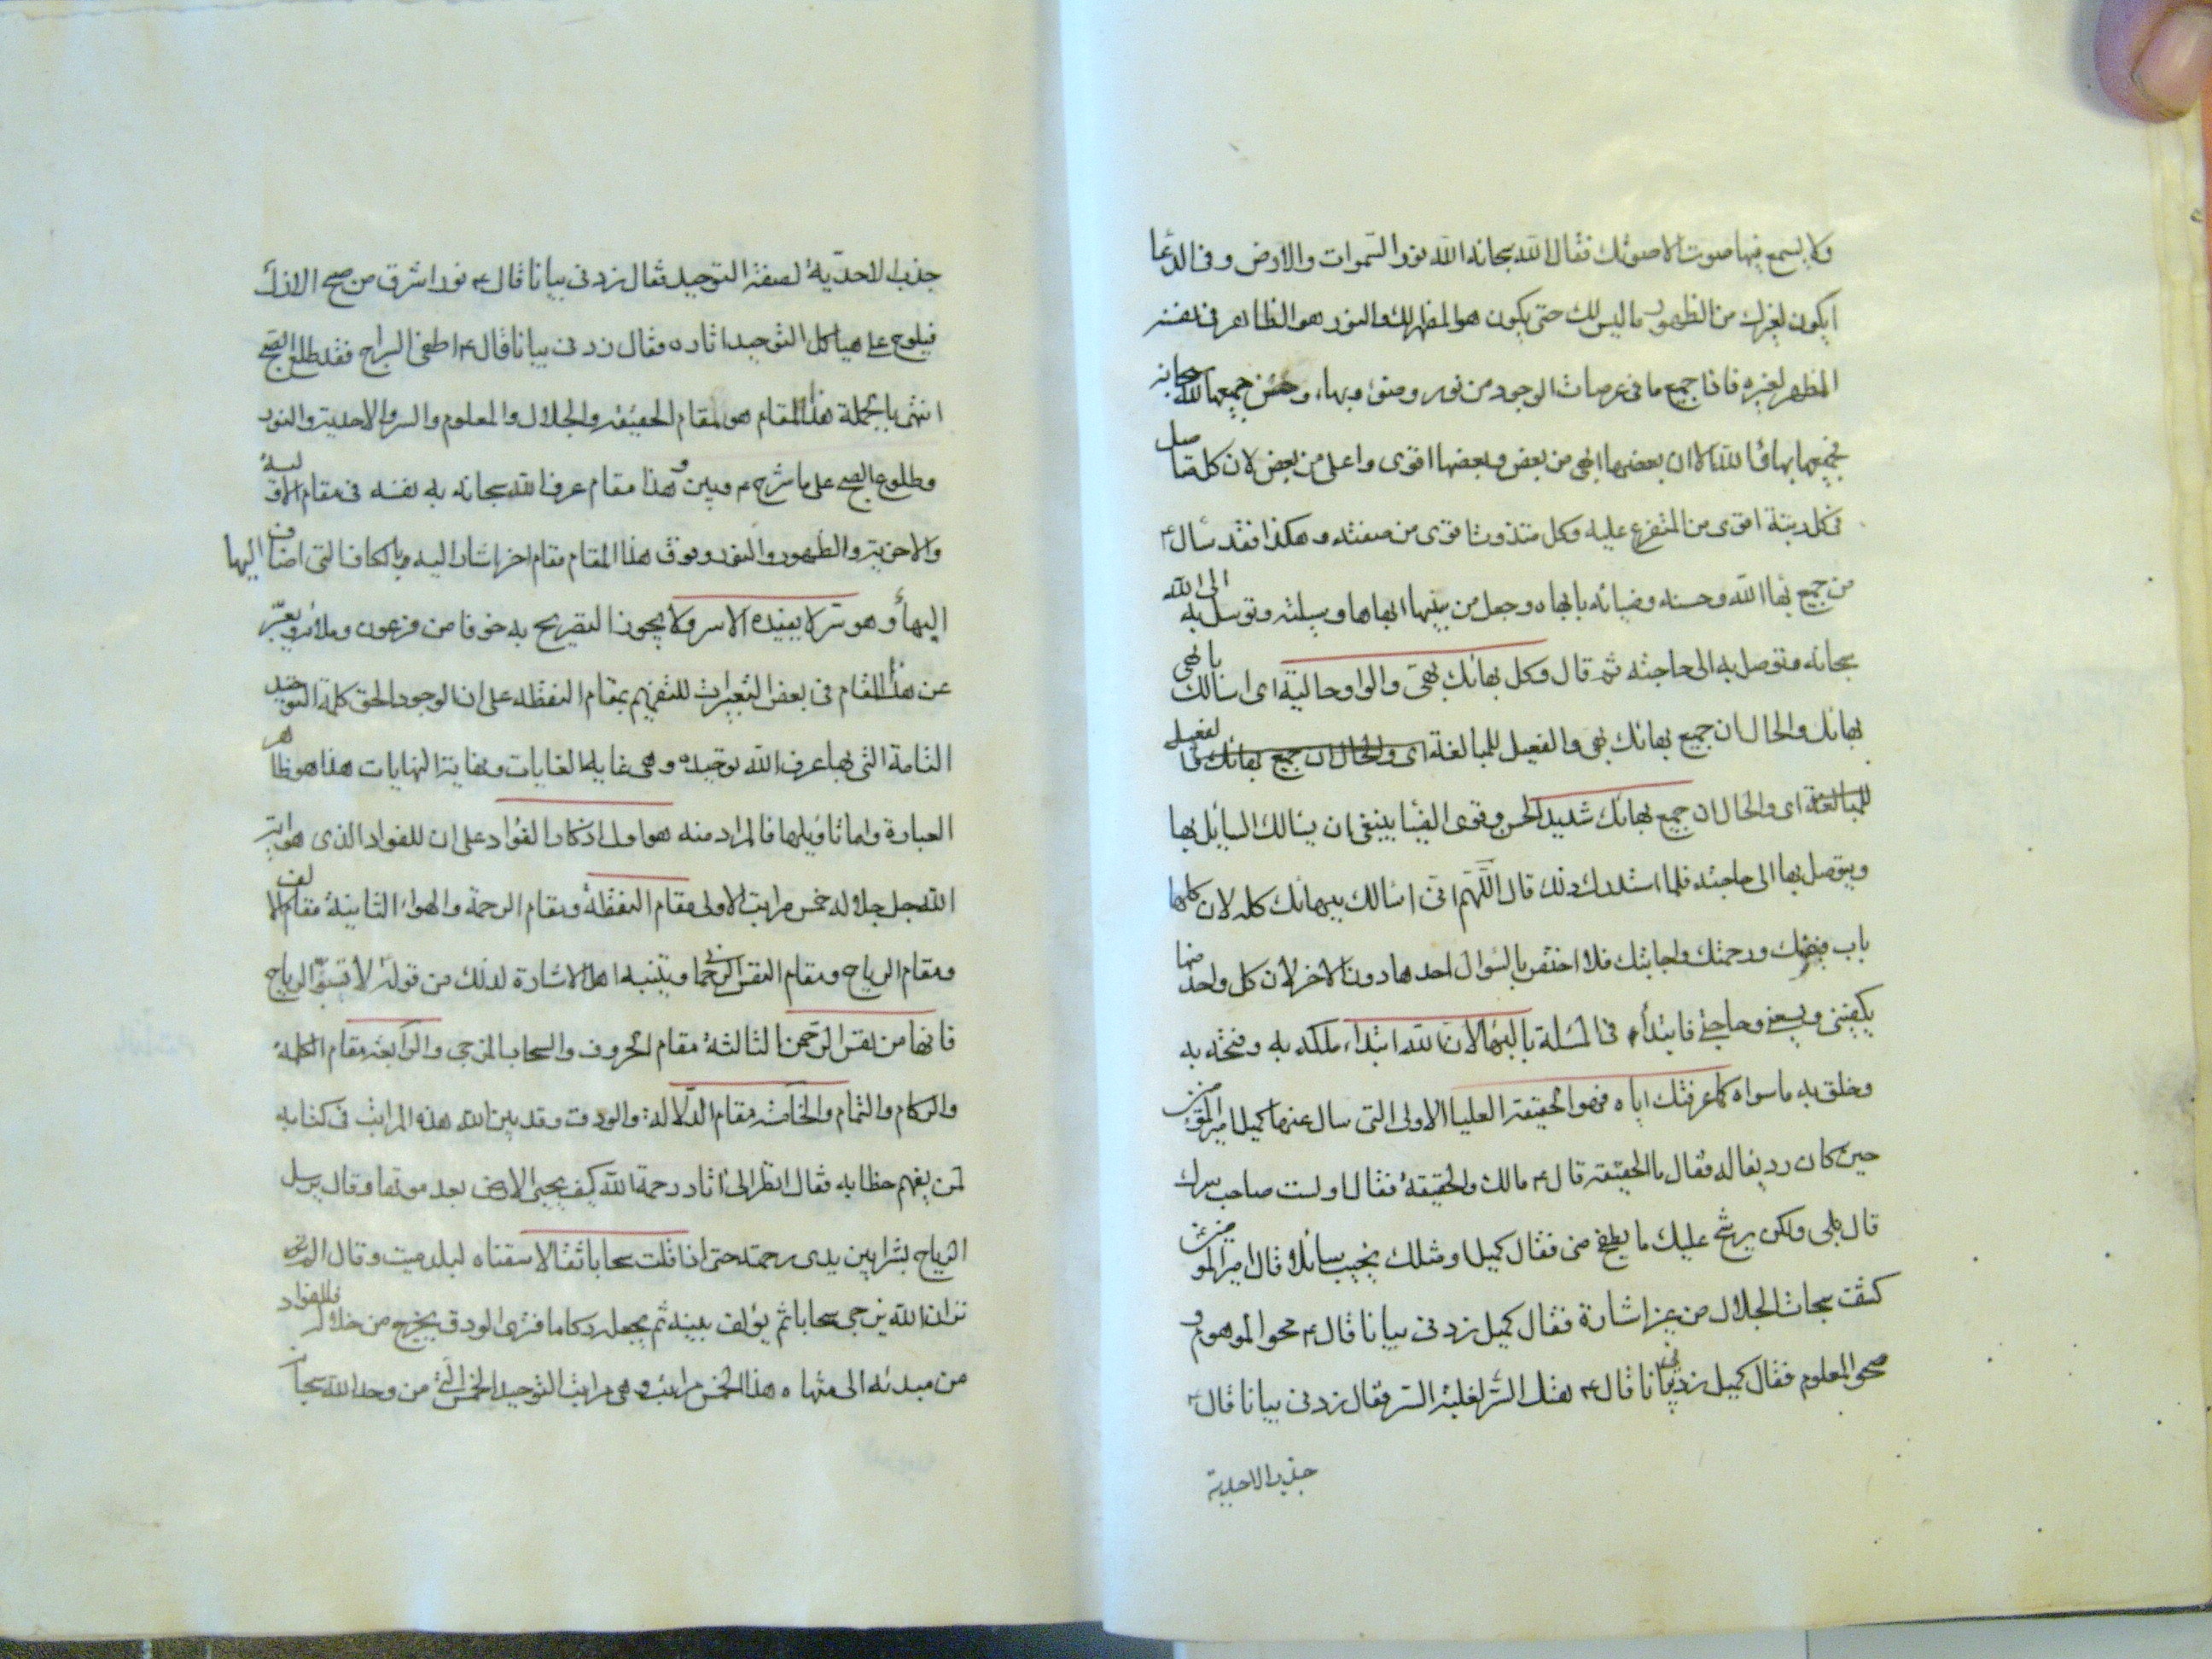 ولا يسمع فيها صوت الا صوتك فقال الله سبحانه الله نور السموات والارض وفى الدعا
ايكون لغيرك من الظهور ما ليس لك حتى يكون هو المظهر لك والنور هو الظاهر فى نفسه
المظهر لغيره فاذا جميع ما فى عرصات الوجود من نور وضوء وبهاء وحسن جميعها لله سبحانه
فجميعها بهاء الله الا ان بعضها ابهى من بعض وبعضها اقوى واعلى من بعض لان كل
فى كل رتبة اقوى من المتفرع عليه وكل متذوت اقوى من صفته وهكذا فقد سأل ع
من جميع بهاء الله وحسنه وضيائه بابهاه وجعل من بينها ابهاها وسيلته وتوسل به الى الله
سبحانه متوصل به الى حاجته ثم قال وكل بهائك بهى والواو حالية اى اسئالك بابهى
بهائك والحال ان جميع بهائك بهى والفعيل للمبالغة اى والحال ان جميع بهائك لفعيل
للمبالغة اى والحال ان جميع بهائك شديد الحسن وقوى الضيا ينبغى ان يسئالك السايل بها
ويتوصل بها الى حاجته فلما استدرك ذلك قال اللهم انى اسئالك ببهائك كله لان كلها
باب فيضك ورحمتك واجابتك فلا اختص بالسؤال احدها دون الاخر لان كل واحد منها
يكفينى ويسعنى وحاجتى فابتدأ فى المسئلة بالبهاء لان الله ابتداء ملكه به وفتحه به
وخلق به ما سواه كما عرفتك اياه فهو الحقيقة العليا الاولى التى سال عنها كميل امير المؤمنين
حين كان رديفا له فقال ما الحقيقة قال ع مالك والحقيقة فقال اولست صاحب سرك
قال بلى ولكن يرشح عليك ما يطفح منى فقال كميل او مثلك يخيب سائلا قال امير المؤمنين
كشف سبحات الجلال من غير اشارة فقال كميل زدنى بيانا قال ع محو الموهوم و
صحو المعلوم فقال كميل زدنى بيانا قال ع هتك الستر لغلبة السر فقال زدنى بيانا قال ع
جذب الاحدية
جذب الاحدية لصفة التوحيد فقال زدنى بيانا قال ع نور اشرق من صبح الازل
فيلوح على هياكل التوحيد اثاره فقال زدنى بيانا قال ع اطفئ السراج فقد طلع الصبح
انتهى بالجملة هذا المقام هو المقام الحقيقة والجلال والمعلوم والسر والاحدية والنور
وطلوع الصبح على ما شرح ع وبين وهذا مقام عرف الله سبحانه به نفسه فى مقام الاولية
والاخرية والظهور والنور وفوق هذا المقام مقام اخر اشار اليه بالكاف التى اضاف اليها
البهاء وهو سر لا يفيده الا سر ولا يجوز التصريح به خوفا من فرعون وملائه ويعبر
عن هذا المقام فى بعض التعبيرات للتفهيم بمقام النقطه على ان الوجود الحق كلمة التوحيد
التامة التى بها عرف الله توحيده وهى غاية الغايات ونهاية النهايات هذا هو ظاهر
العبارة واما تاويلها فالمراد منه هو اول اذكار الفؤاد على ان للفواد الذى هو اية
الله جل جلاله خمس مراتب الاولى مقام النقطة ومقام الرحمة والهواء الثانية مقام الالف
ومقام الرياح ومقام النفس الرحمانى وينبئه اهل الاشارة لذلك من قوله لا تسبوا الرياح
فانها من نفس الرحمن الثالثة مقام الحروف والسحاب المزجى والرابعة مقام الكلمة
والركام والتمام والخامسة مقام الدلالة والودق وقد بين الله هذه المراتب فى كتابه
لمن يفهم خطابه فقال انظر الى اثار رحمة الله كيف يحيى الارض بعد موتها وقال يرسل
الرياح بشرا بين يدى رحمته حتى اذا اقلت سحابا ثقالا سقناه لبلد ميت وقال الم
تر ان الله يزجى سحابا ثم يؤلف بينه ثم يجعله ركاما فترى الودق يخرج من خلاله فللفواد
من مبدئه الى منتهاه هذا الخمس مراتب وهى مراتب التوحيد الخمس التى من وحد الله سبحانه